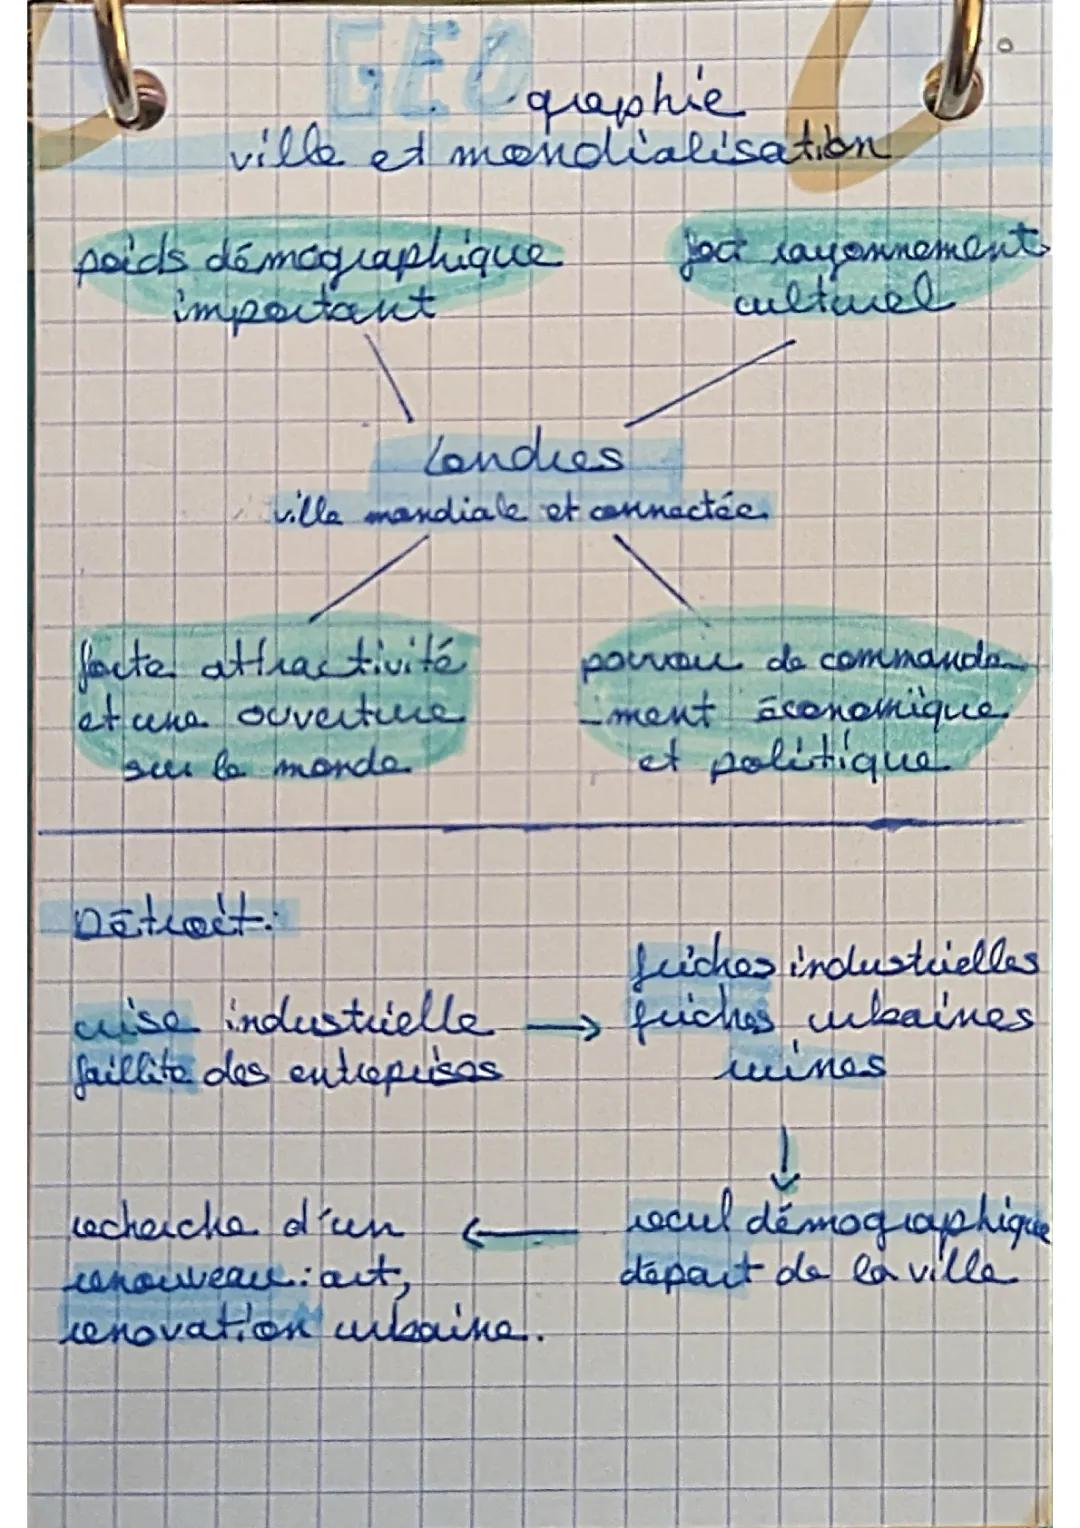 GEOgraphie
ville et mondialisation
poids démographique
important
fort rayonnement
culturel
Londres
ville mondiale et connectée
forte attractivité
et une ouverture
sur le monde
pouvoir de commande-
-ment économique
et politique
Détroit:
crise industrielle
faillite des entreprises
friches industrielles
friches urbaines
ruines
recul démographique
départ de la ville
recherche d'un
renouveau: art,
renovation urbaine.